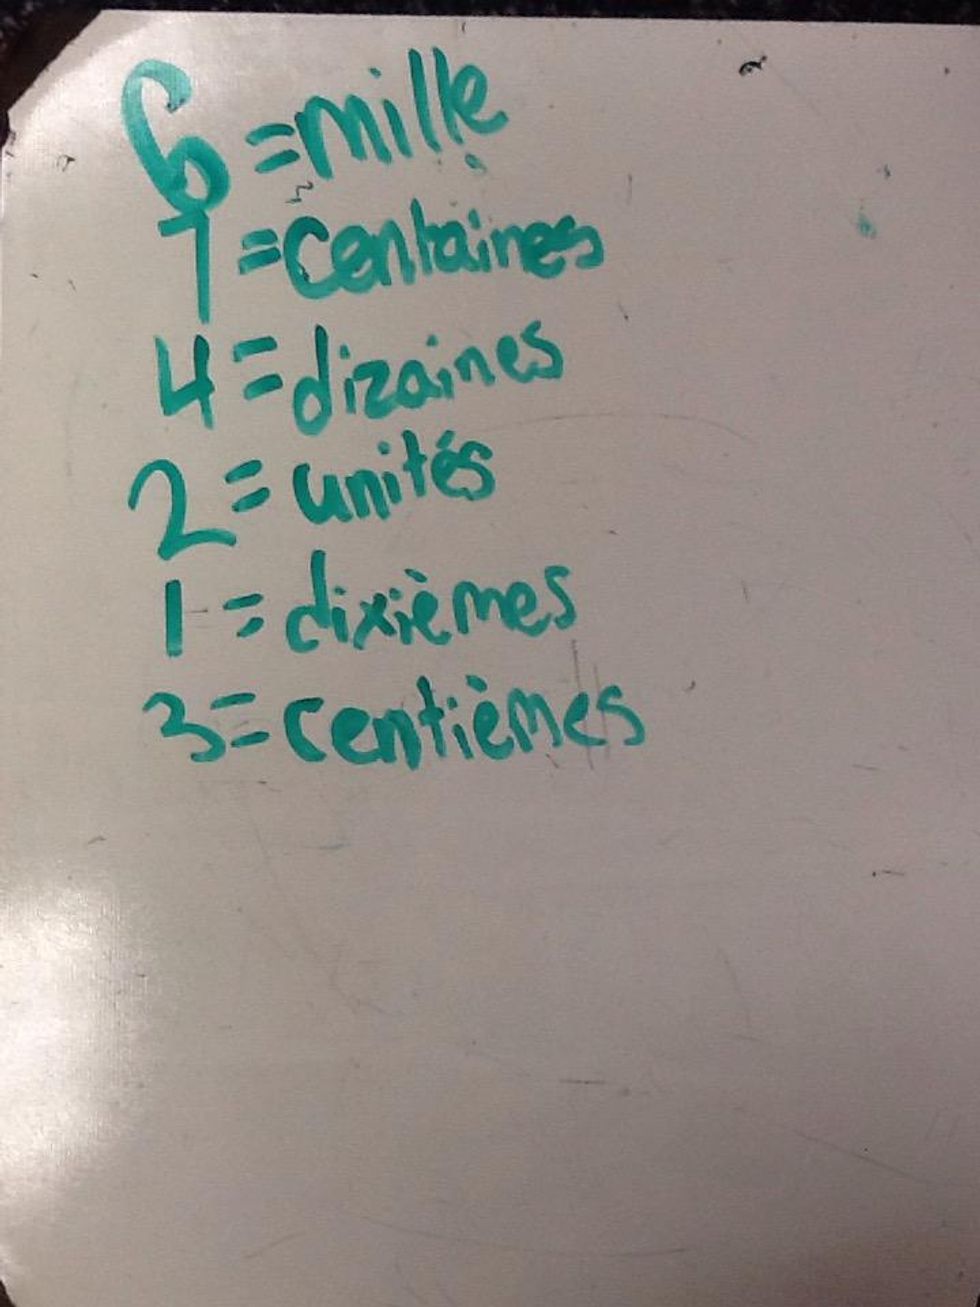 6 = mille
7 = centaines
4 = dizaines
2 = unités
1 = dixièmes
3 = centièmes